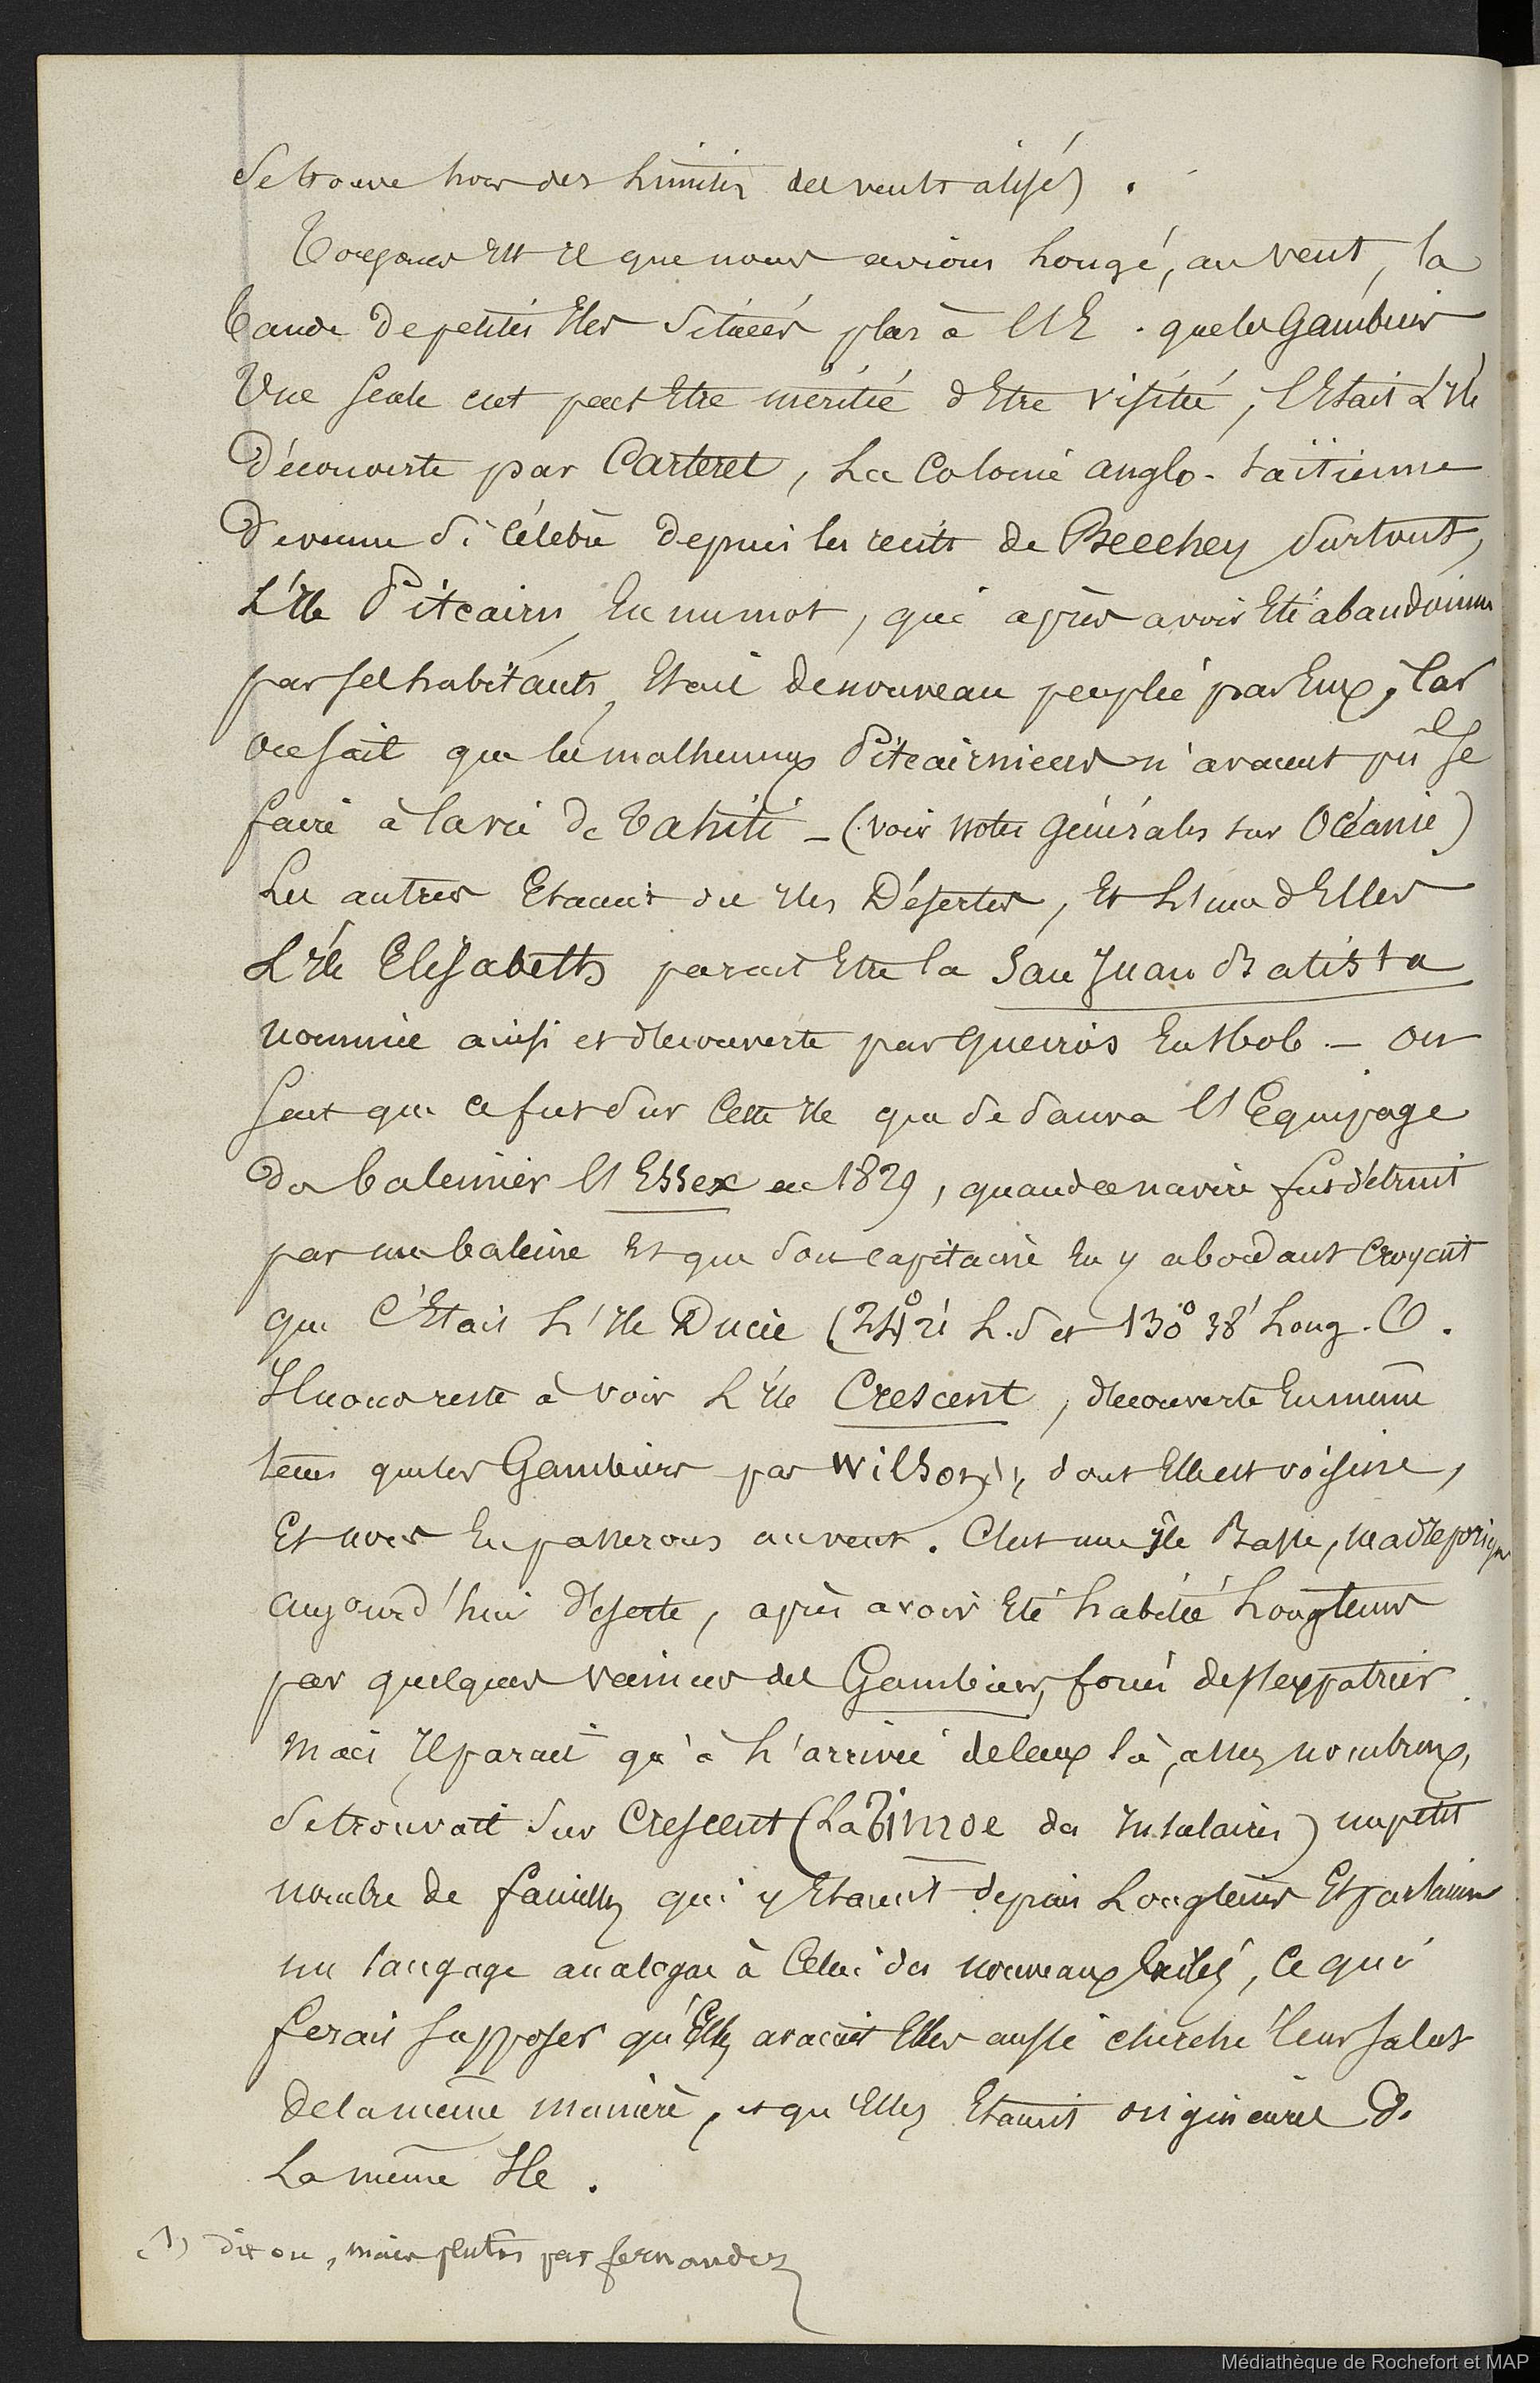 se trouve hors des limites des vents alisés.
Toujours est il que nous avions longé, au vent, la
bande de petites Iles situées plus à l'E. que les Gambier
Une seule eut peut Etre mérité d'Etre visitée, c'Etait L'Ile
découverte par Carteret, La Colonie anglo-taïtienne
devenue si célèbre depuis les récits de Beechey surtout,
L'Ile Pitcairn En un mot, qui après avoir Eté abandonnée
par ses habitants, Etait de nouveau peuplée par Eux, Car
on sait que les malheureux Pitcairniens n'avaient pu se
faire à la vie de Tahiti - (voir notes générales sur Océanie)
Les autres Etaient des Iles Désertes, Et L'une d'Elles
L'Ile Elisabeth parait Etre la San Juan Batista
nommée ainsi et découverte par Queiros En 1606 - on
sait que ce fut sur Cette Ile que se sauva l'Equipage
du baleinier l'Essex en 1829, quand ce navire fut détruit
par une baleine Et que son capitaine En y abordant Croyait
que C'Etait L'Ile Ducie (24° 21' L.S et 130° 38' Long. O.
Il nous reste à voir L'Ile Crescent, découverte En même
tems que les Gambier par Wilson (1), dont Elle est voisine,
Et nous En passerons au vent. C'est une île Basse, madréporique
aujourd'hui déserte, après avoir Eté habitée Longtems
par quelques vaincus des Gambier, forcés de s'expatrier
mais Il parait qu'à L'arrivée de ceux là, assez nombreux,
se trouvait sur Crescent (La Timoe des Insulaires) un petit
nombre de familles qui y Etaient depuis Longtems Et parlaient
un langage analogue à Celui des nouveaux Exilés, Ce qui
ferait supposer qu'Elles avaient Elles aussi cherché leur salut
de la même manière, et qu'Elles Etaient originaires de
La même Ile.
(1) dit on, mais plutôt par fernandez
Médiathèque de Rochefort et MAP